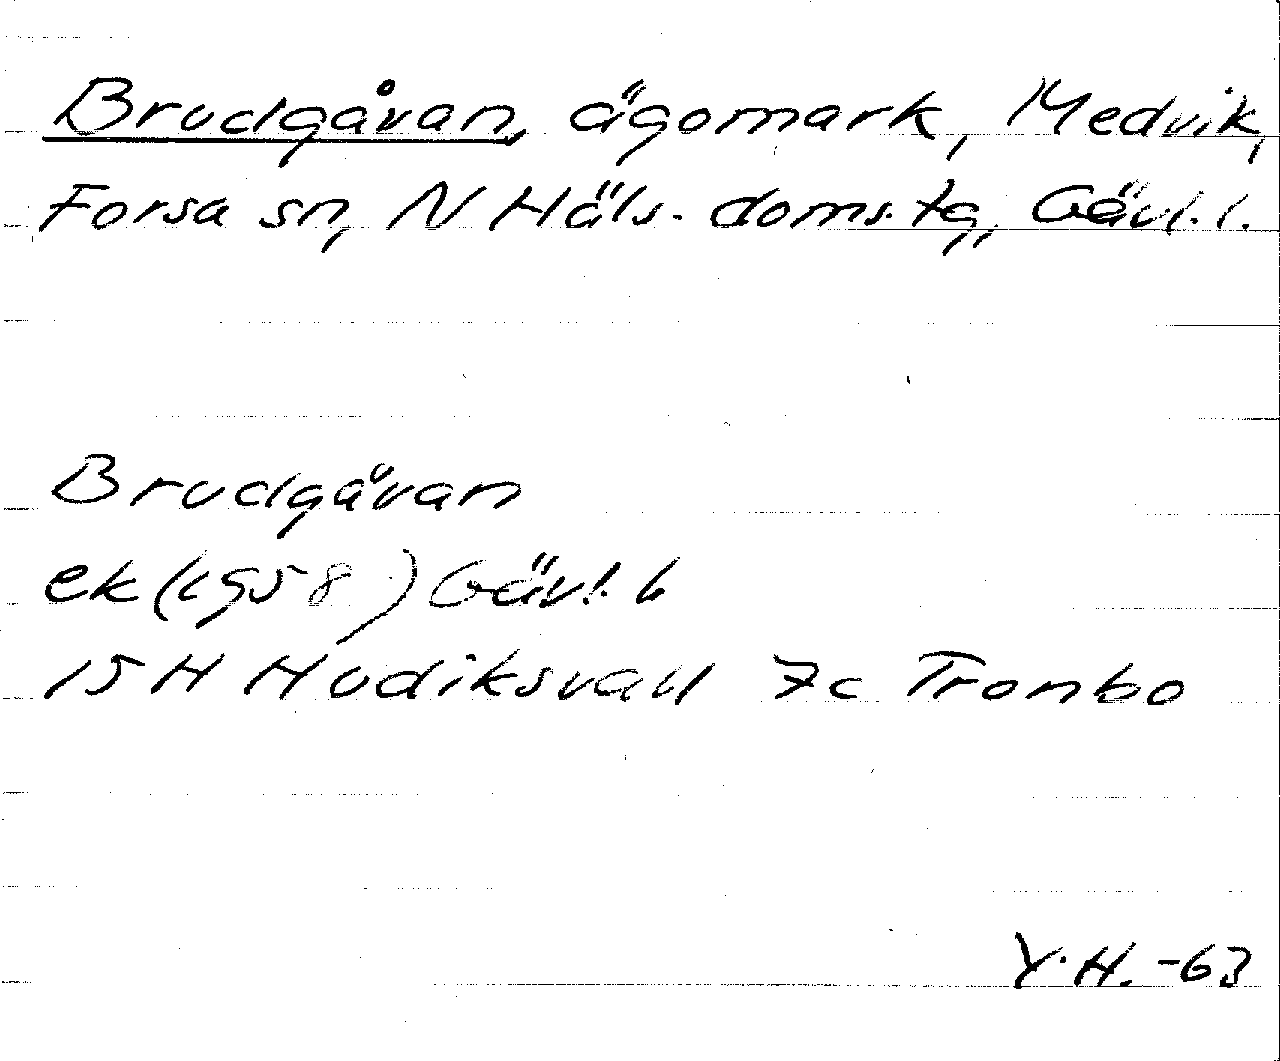 Brudgåvan, ägomark, Medvik,
Forsa sn, N Häls. doms. tg, Gävl. l.
Brudgåvan
ek (1958) Gävl. l.
15 H Hudiksvall 7c Trombo
Y. H. -63